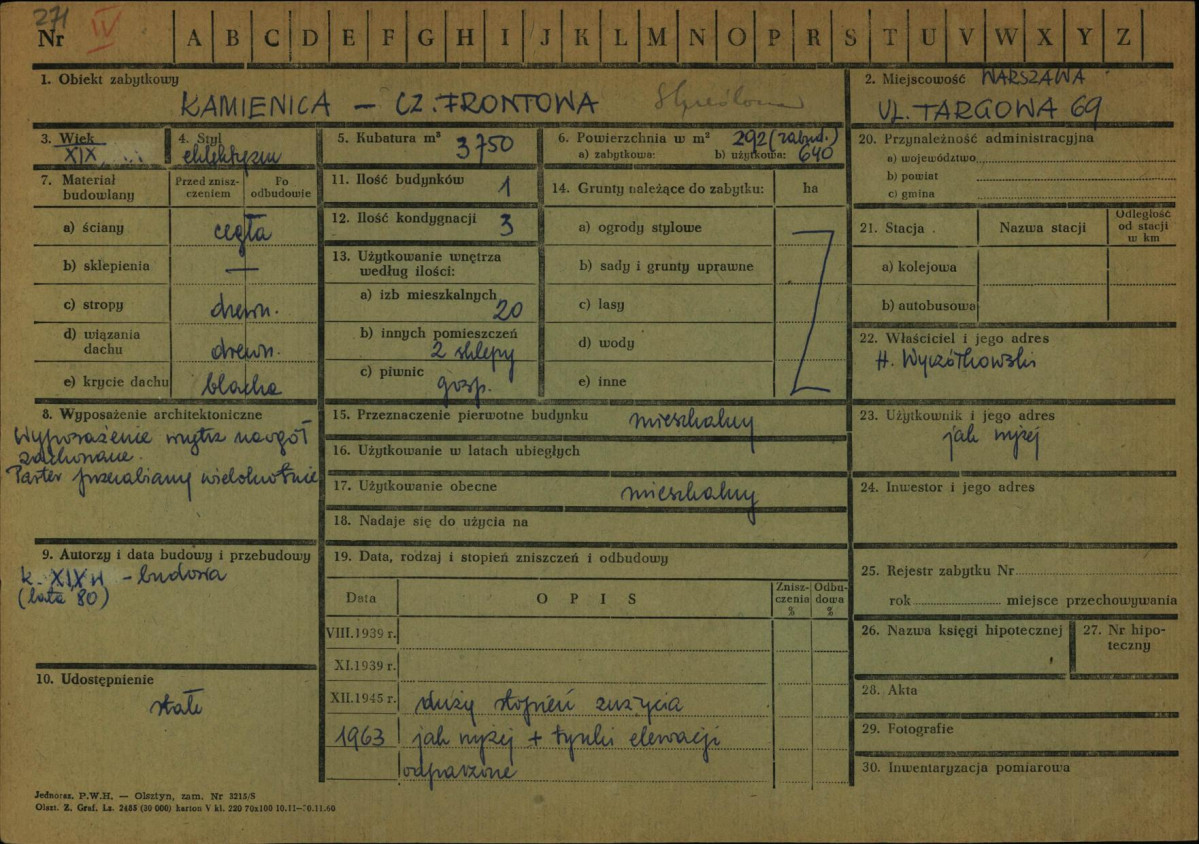 271
Nr IV A B C D E F G H I J K L M N O P R S T U V W X Y Z
1. Obiekt zabytkowy
KAMIENICA – CZ. FRONTOWA
2. Miejscowość WARSZAWA
UL. TARGOWA 69
3. Wiek
XIX
4. Styl
eklektyzm
5. Kubatura m³ 3750
6. Powierzchnia w m² 292 (zabud.)
a) zabytkowa: b) użytkowa: 640
7. Materiał budowlany
Przed zniszczeniem
Po odbudowie
a) ściany cegła
b) sklepienia —
c) stropy drewn.
d) wiązania dachu drewn.
e) krycie dachu blacha
8. Wyposażenie architektoniczne
Wyposażenie wnętrz naogół
zachowane.
Parter przerabiany wielokrotnie
9. Autorzy i data budowy i przebudowy
k. XIX w – budowa
(lata 80)
10. Udostępnienie
stałe
11. Ilość budynków 1
12. Ilość kondygnacji 3
13. Użytkowanie wnętrza
według ilości:
a) izb mieszkalnych 20
b) innych pomieszczeń
2 sklepy
c) piwnic gosp.
14. Grunty należące do zabytku: ha
a) ogrody stylowe
b) sady i grunty uprawne
c) lasy
d) wody
e) inne
15. Przeznaczenie pierwotne budynku mieszkalny
16. Użytkowanie w latach ubiegłych
17. Użytkowanie obecne mieszkalny
18. Nadaje się do użycia na
19. Data, rodzaj i stopień zniszczeń i odbudowy
Data
O P I S
Zniszczenia %
Odbudowa %
VIII.1939 r.
XI.1939 r.
XII.1945 r. duży stopień zużycia
1963 jak wyżej + tynki elewacji
odparzone
20. Przynależność administracyjna
a) województwo
b) powiat
c) gmina
21. Stacja
Nazwa stacji
Odległość od stacji w km
a) kolejowa
b) autobusowa
22. Właściciel i jego adres
H. Wyczółkowski
23. Użytkownik i jego adres
jak wyżej
24. Inwestor i jego adres
25. Rejestr zabytku Nr
rok miejsce przechowywania
26. Nazwa księgi hipotecznej
27. Nr hipoteczny
28. Akta
29. Fotografie
30. Inwentaryzacja pomiarowa
Jednoraz. P.W.H. — Olsztyn, zam. Nr 3215/S
Olszt. Z. Graf. Lz. 2485 (30 000) karton V kl. 220 70x100 10.11—20.11.60